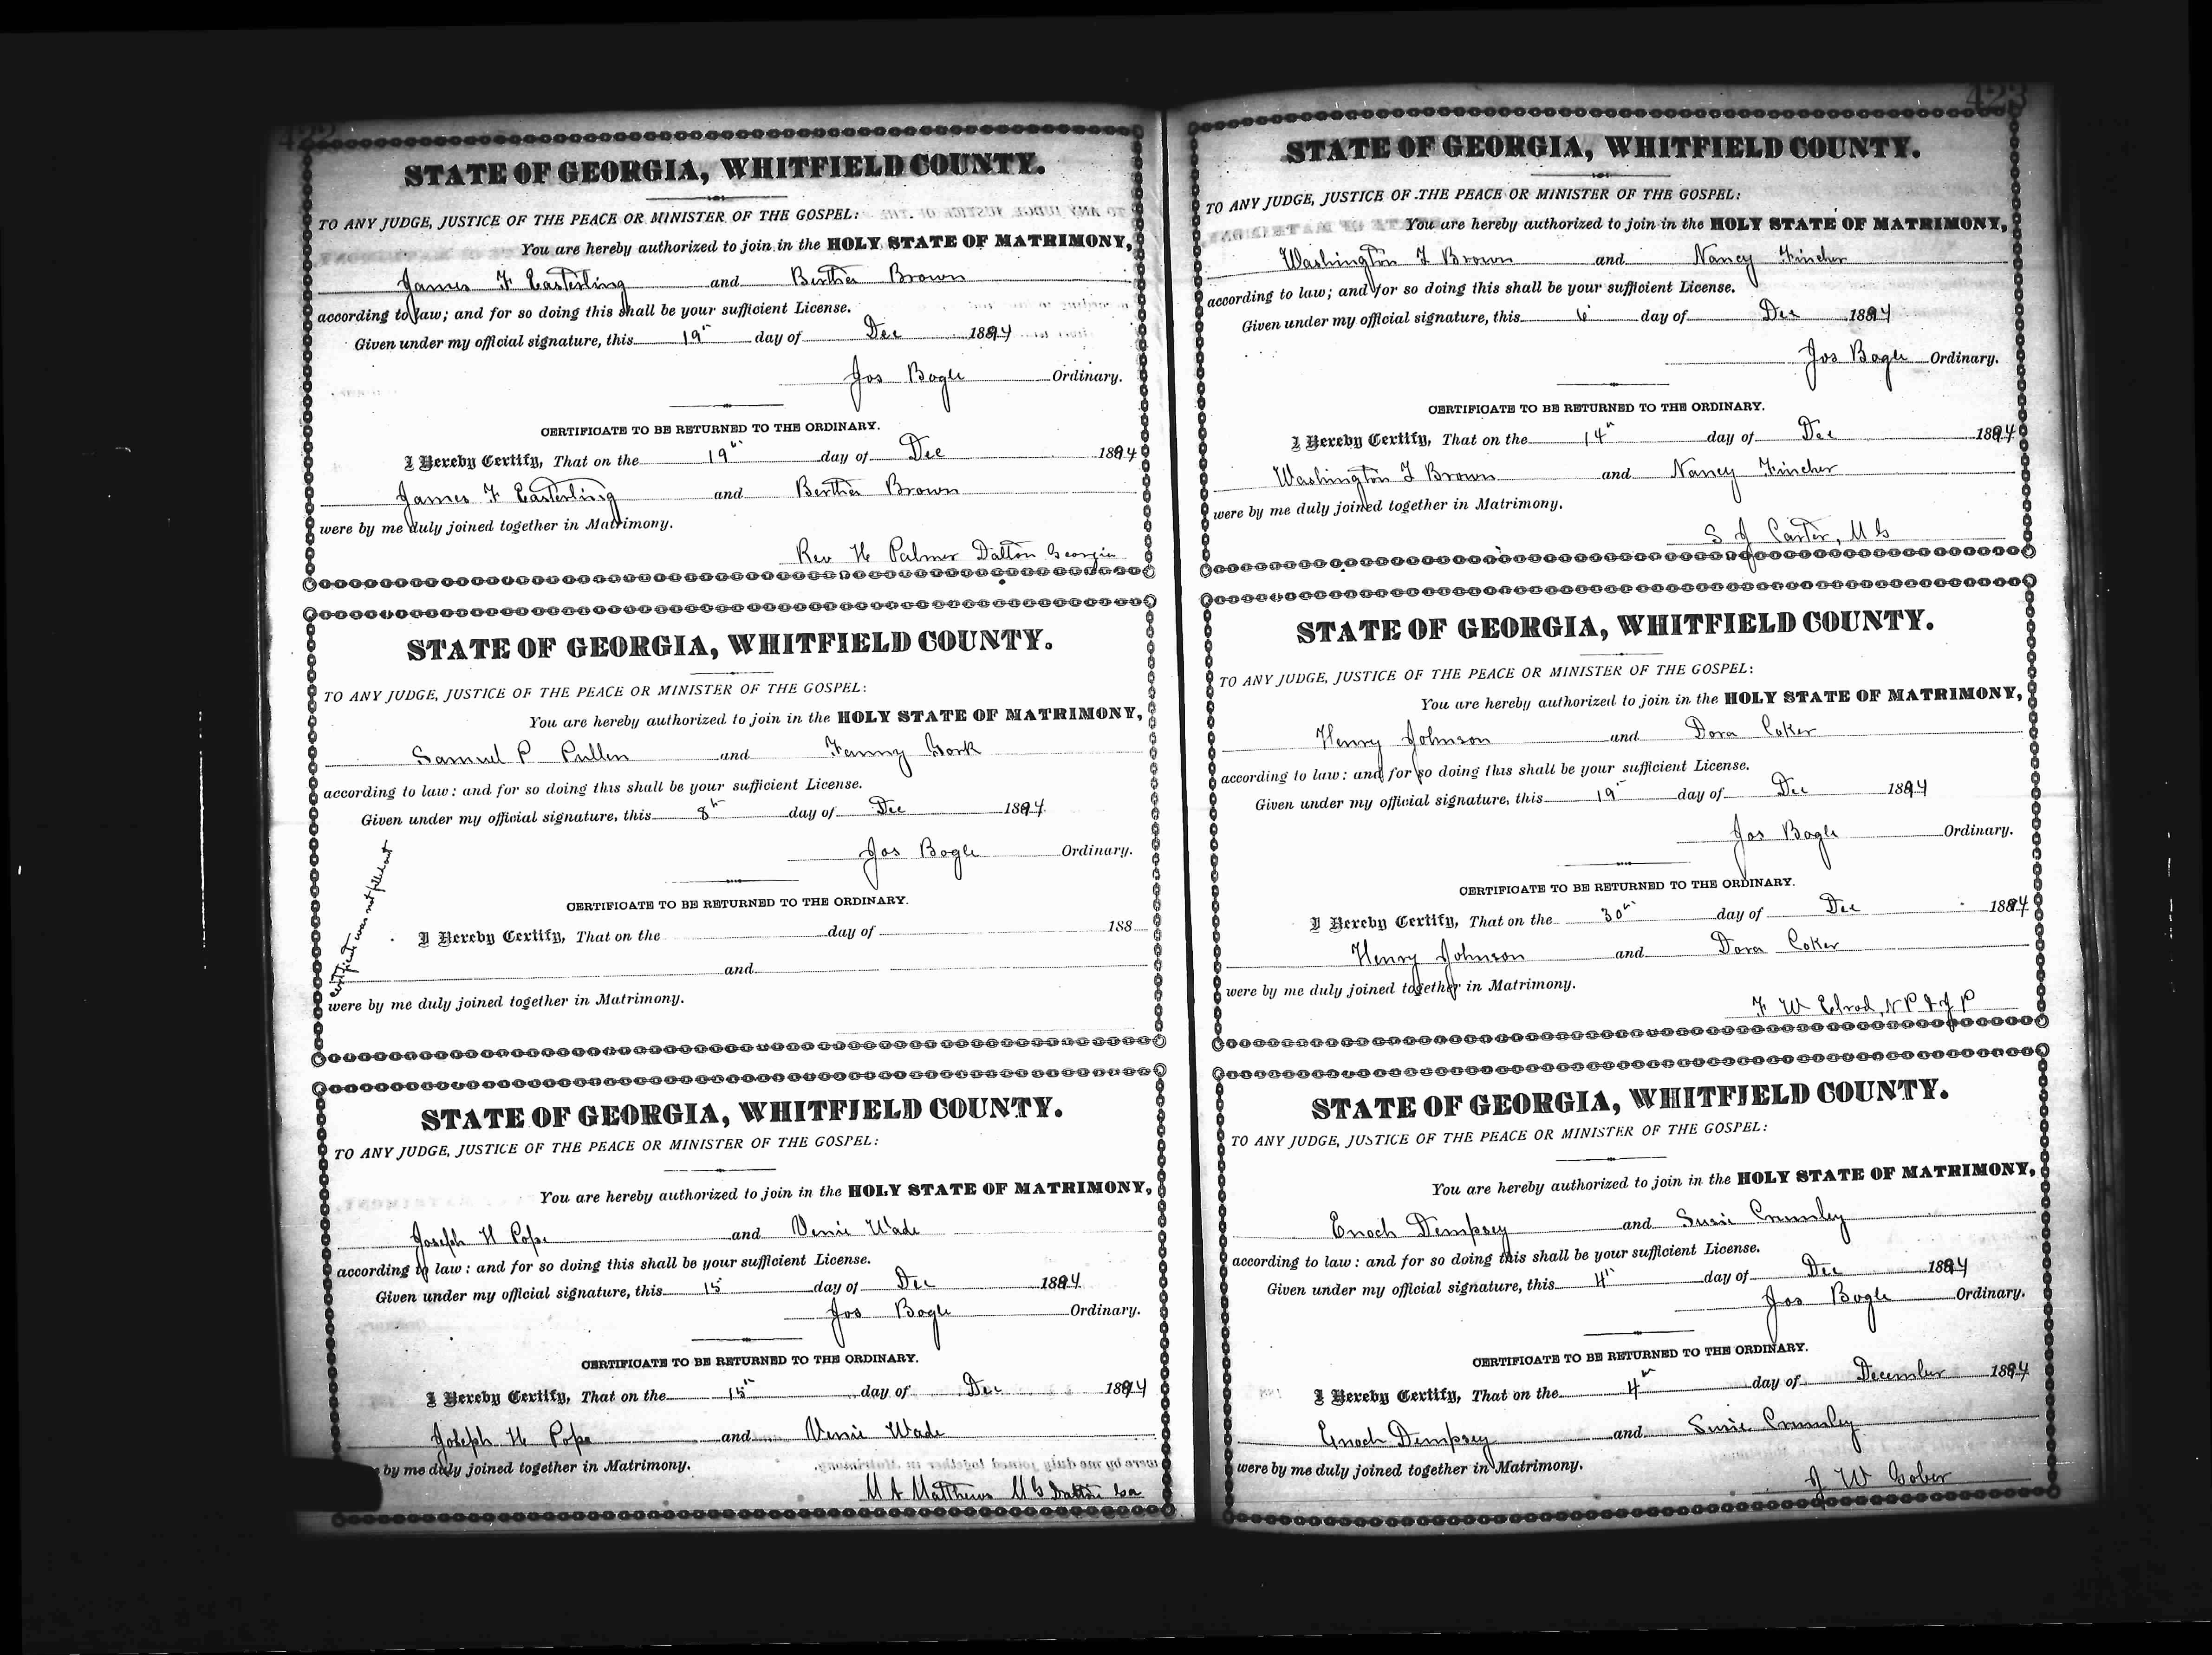 422
STATE OF GEORGIA, WHITFIELD COUNTY.
TO ANY JUDGE, JUSTICE OF THE PEACE OR MINISTER OF THE GOSPEL:
You are hereby authorized to join in the HOLY STATE OF MATRIMONY,
James F Easterling and Bertha Brown
according to law; and for so doing this shall be your sufficient License.
Given under my official signature, this 19" day of Dec 1894
Jos Bogle Ordinary.
CERTIFICATE TO BE RETURNED TO THE ORDINARY.
I Hereby Certify, That on the 19th day of Dec 1894
James F Easterling and Bertha Brown
were by me duly joined together in Matrimony.
Rev H Palmer Dalton Georgia
STATE OF GEORGIA, WHITFIELD COUNTY.
TO ANY JUDGE, JUSTICE OF THE PEACE OR MINISTER OF THE GOSPEL:
You are hereby authorized to join in the HOLY STATE OF MATRIMONY,
Samuel P Pullen and Fanny Gork
according to law: and for so doing this shall be your sufficient License.
Given under my official signature, this 8th day of Dec 1894
Jos Bogle Ordinary.
certificate was not filled out
CERTIFICATE TO BE RETURNED TO THE ORDINARY.
I Hereby Certify, That on the day of 188
and
were by me duly joined together in Matrimony.
STATE OF GEORGIA, WHITFIELD COUNTY.
TO ANY JUDGE, JUSTICE OF THE PEACE OR MINISTER OF THE GOSPEL:
You are hereby authorized to join in the HOLY STATE OF MATRIMONY,
Joseph H Pope and Venie Wade
according to law: and for so doing this shall be your sufficient License.
Given under my official signature, this 15 day of Dec 1894
Jos Bogle Ordinary.
CERTIFICATE TO BE RETURNED TO THE ORDINARY.
I Hereby Certify, That on the 15th day of Dec 1894
Joseph H Pope and Venie Wade
by me duly joined together in Matrimony.
M A Matthews M G Dalton Ga
423
STATE OF GEORGIA, WHITFIELD COUNTY.
TO ANY JUDGE, JUSTICE OF THE PEACE OR MINISTER OF THE GOSPEL:
You are hereby authorized to join in the HOLY STATE OF MATRIMONY,
Washington L Brown and Nancy Fincher
according to law; and for so doing this shall be your sufficient License.
Given under my official signature, this 6 day of Dec 1894
Jos Bogle Ordinary.
CERTIFICATE TO BE RETURNED TO THE ORDINARY.
I Hereby Certify, That on the 14th day of Dec 1894
Washington L Brown and Nancy Fincher
were by me duly joined together in Matrimony.
S J Carter, M G
STATE OF GEORGIA, WHITFIELD COUNTY.
TO ANY JUDGE, JUSTICE OF THE PEACE OR MINISTER OF THE GOSPEL:
You are hereby authorized to join in the HOLY STATE OF MATRIMONY,
Henry Johnson and Dora Coker
according to law: and for so doing this shall be your sufficient License.
Given under my official signature, this 19" day of Dec 1894
Jos Bogle Ordinary.
CERTIFICATE TO BE RETURNED TO THE ORDINARY.
I Hereby Certify, That on the 30th day of Dec 1894
Henry Johnson and Dora Coker
were by me duly joined together in Matrimony.
F W Elrod, N P & J P
STATE OF GEORGIA, WHITFIELD COUNTY.
TO ANY JUDGE, JUSTICE OF THE PEACE OR MINISTER OF THE GOSPEL:
You are hereby authorized to join in the HOLY STATE OF MATRIMONY,
Enoch Dempsey and Susie Crumley
according to law: and for so doing this shall be your sufficient License.
Given under my official signature, this 4th day of Dec 1894
Jos Bogle Ordinary.
CERTIFICATE TO BE RETURNED TO THE ORDINARY.
I Hereby Certify, That on the 4th day of December 1894
Enoch Dempsey and Susie Crumley
were by me duly joined together in Matrimony.
J W Gober